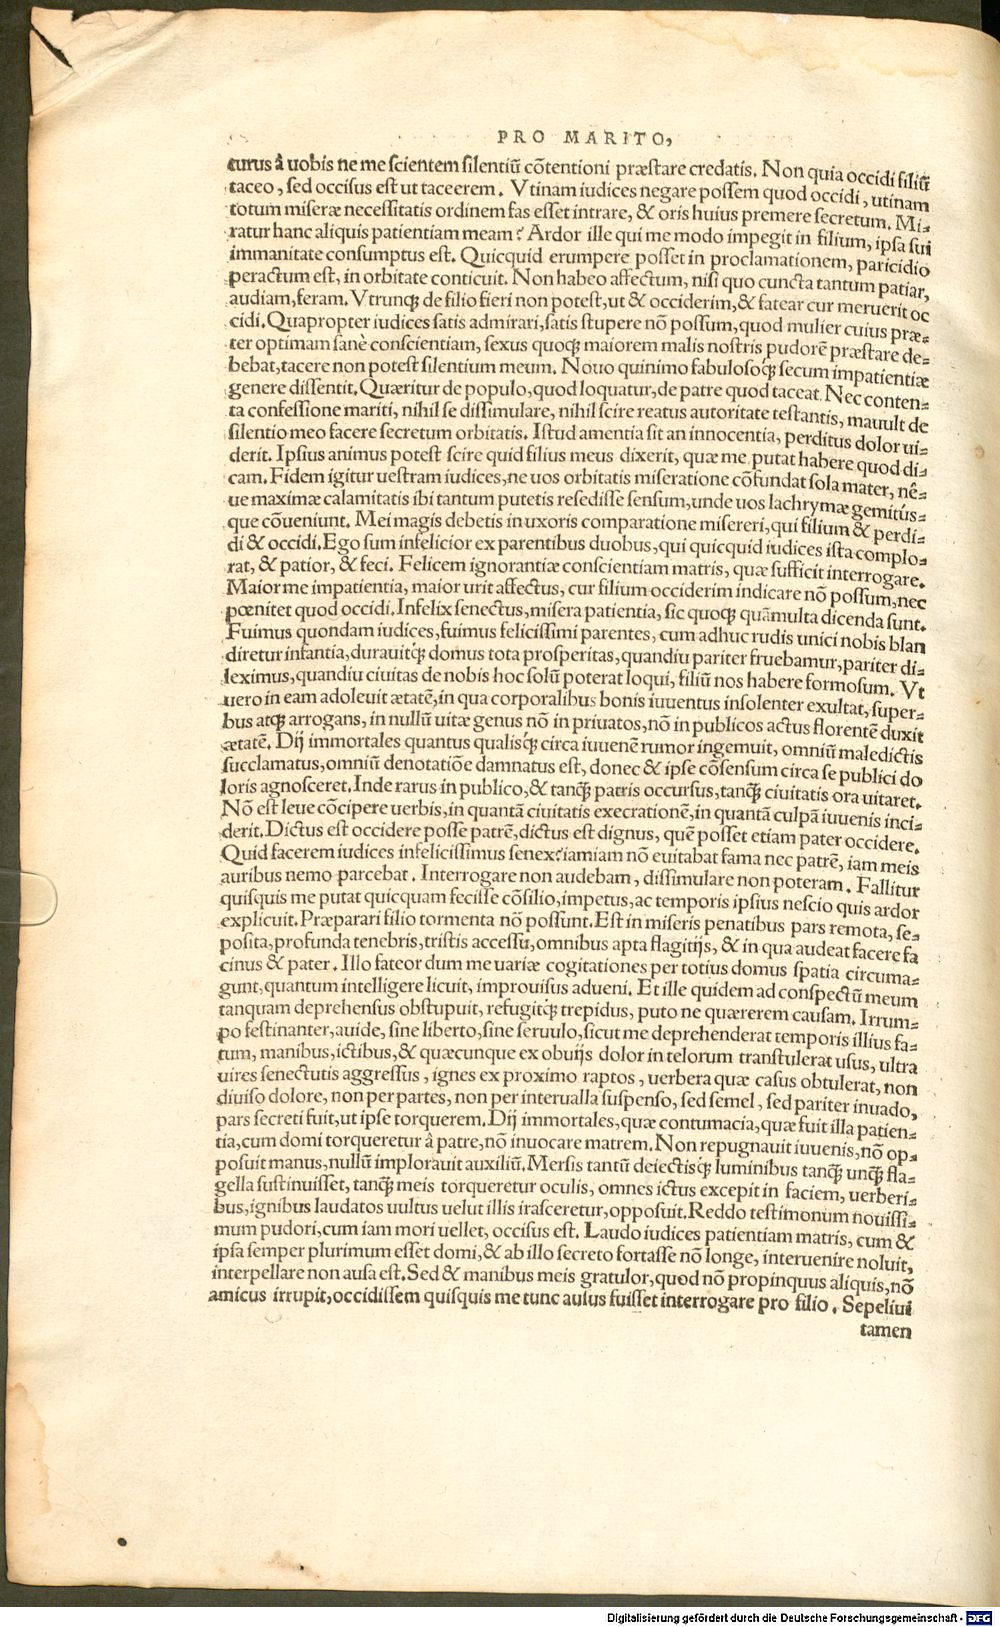 PRO MARITO,
turus à uobis ne me scientem silentiũ cõtentioni præstare credatis. Non quia occidi filiũ
taceo, sed occisus est ut taceerem. Vtinam iudices negare possem quod occidi, utinam
totum miseræ necessitatis ordinem fas esset intrare, & oris huius premere secretum. Mi-
ratur hanc aliquis patientiam meam? Ardor ille qui me modo impegit in filium, ipsa sui
immanitate consumptus est. Quicquid erumpere posset in proclamationem, paricidio
peractum est, in orbitate conticuit. Non habeo affectum, nisi quo cuncta tantum patiar,
audiam, feram. Vtrunq; de filio fieri non potest, ut & occiderim, & fatear cur meruerit oc
cidi. Quapropter iudices satis admirari, satis stupere nõ possum, quod mulier cuius præ-
ter optimam sanè conscientiam, sexus quoq; maiorem malis nostris pudorẽ præstare de-
bebat, tacere non potest silentium meum. Nouo quinimo fabulosoq́; secum impatientiæ
genere dissentit. Quæritur de populo, quod loquatur, de patre quod taceat. Nec conten-
ta confessione mariti, nihil se dissimulare, nihil scire reatus autoritate testantis, mauult de
silentio meo facere secretum orbitatis. Istud amentia sit an innocentia, perditus dolor ui-
derit. Ipsius animus potest scire quid filius meus dixerit, quæ me putat habere quod di-
cam. Fidem igitur uestram iudices, ne uos orbitatis miseratione cõfundat sola mater, nê-
ue maximæ calamitatis ibi tantum putetis resedisse sensum, unde uos lachrymæ gemitús-
que cõueniunt. Mei magis debetis in uxoris comparatione misereri, qui filium & perdi-
di & occidi. Ego sum infelicior ex parentibus duobus, qui quicquid iudices ista complo-
rat, & patior, & feci. Felicem ignorantiæ conscientiam matris, quæ sufficit interrogare.
Maior me impatientia, maior urit affectus, cur filium occiderim indicare nõ possum, nec
pœnitet quod occidi. Infelix senectus, misera patientia, sic quoq; quãmulta dicenda sunt.
Fuimus quondam iudices, fuimus felicissimi parentes, cum adhuc rudis unici nobis blan
diretur infantia, durauitq́; domus tota prosperitas, quandiu pariter fruebamur, pariter di-
leximus, quandiu ciuitas de nobis hoc solũ poterat loqui, filiũ nos habere formosum. Vt
uero in eam adoleuit ætatẽ, in qua corporalibus bonis iuuentus insolenter exultat, super-
bus atq; arrogans, in nullũ uitæ genus nõ in priuatos, nõ in publicos actus florentẽ duxit
ætatẽ. Dij immortales quantus qualisq́; circa iuuenẽ rumor ingemuit, omniũ maledictis
succlamatus, omniũ denotatiõe damnatus est, donec & ipse cõsensum circa se publici do
loris agnosceret. Inde rarus in publico, & tanq̃; patris occursus, tanq̃; ciuitatis ora uitaret.
Nõ est leue cõcipere uerbis, in quantã ciuitatis execrationẽ, in quantã culpã iuuenis inci-
derit. Dictus est occidere posse patrẽ, dictus est dignus, quẽ posset etiam pater occidere.
Quid facerem iudices infelicissimus senex? iamiam nõ euitabat fama nec patrẽ, iam meis
auribus nemo parcebat. Interrogare non audebam, dissimulare non poteram. Fallitur
quisquis me putat quicquam fecisse cõsilio, impetus, ac temporis ipsius nescio quis ardor
explicuit. Præparari filio tormenta nõ possunt. Est in miseris penatibus pars remota, se-
posita, profunda tenebris, tristis accessu, omnibus apta flagitijs, & in qua audeat facere fa
cinus & pater. Illo fateor dum me uariæ cogitationes per totius domus spatia circuma-
gunt, quantum intelligere licuit, improuisus adueni. Et ille quidem ad conspectũ meum
tanquam deprehensus obstupuit, refugitq́; trepidus, puto ne quærerem causam. Irrum-
po festinanter, auide, sine liberto, sine seruulo, sicut me deprehenderat temporis illius fa-
tum, manibus, ictibus, & quæcunque ex obuijs dolor in telorum transtulerat usus, ultra
uires senectutis aggressus, ignes ex proximo raptos, uerbera quæ casus obtulerat, non
diuiso dolore, non per partes, non per interualla suspenso, sed semel, sed pariter inuado,
pars secreti fuit, ut ipse torquerem. Dij immortales, quæ contumacia, quæ fuit illa patien-
tia, cum domi torqueretur à patre, nõ inuocare matrem. Non repugnauit iuuenis, nõ op-
posuit manus, nullũ implorauit auxiliũ. Mersis tantũ deiectisq́; luminibus tanq̃; unq̃; fla-
gella sustinuisset, tanq̃; meis torqueretur oculis, omnes ictus excepit in faciem, uerberi-
bus, ignibus laudatos uultus uelut illis irasceretur, opposuit. Reddo testimonum nouissi-
mum pudori, cum iam mori uellet, occisus est. Laudo iudices patientiam matris, cum &
ipsa semper plurimum esset domi, & ab illo secreto fortasse nõ longe, interuenire noluit,
interpellare non ausa est. Sed & manibus meis gratulor, quod nõ propinquus aliquis, nõ
amicus irrupit, occidissem quisquis me tunc ausus fuisset interrogare pro filio. Sepeliui
tamen
Digitalisierung gefördert durch die Deutsche Forschungsgemeinschaft - DFG